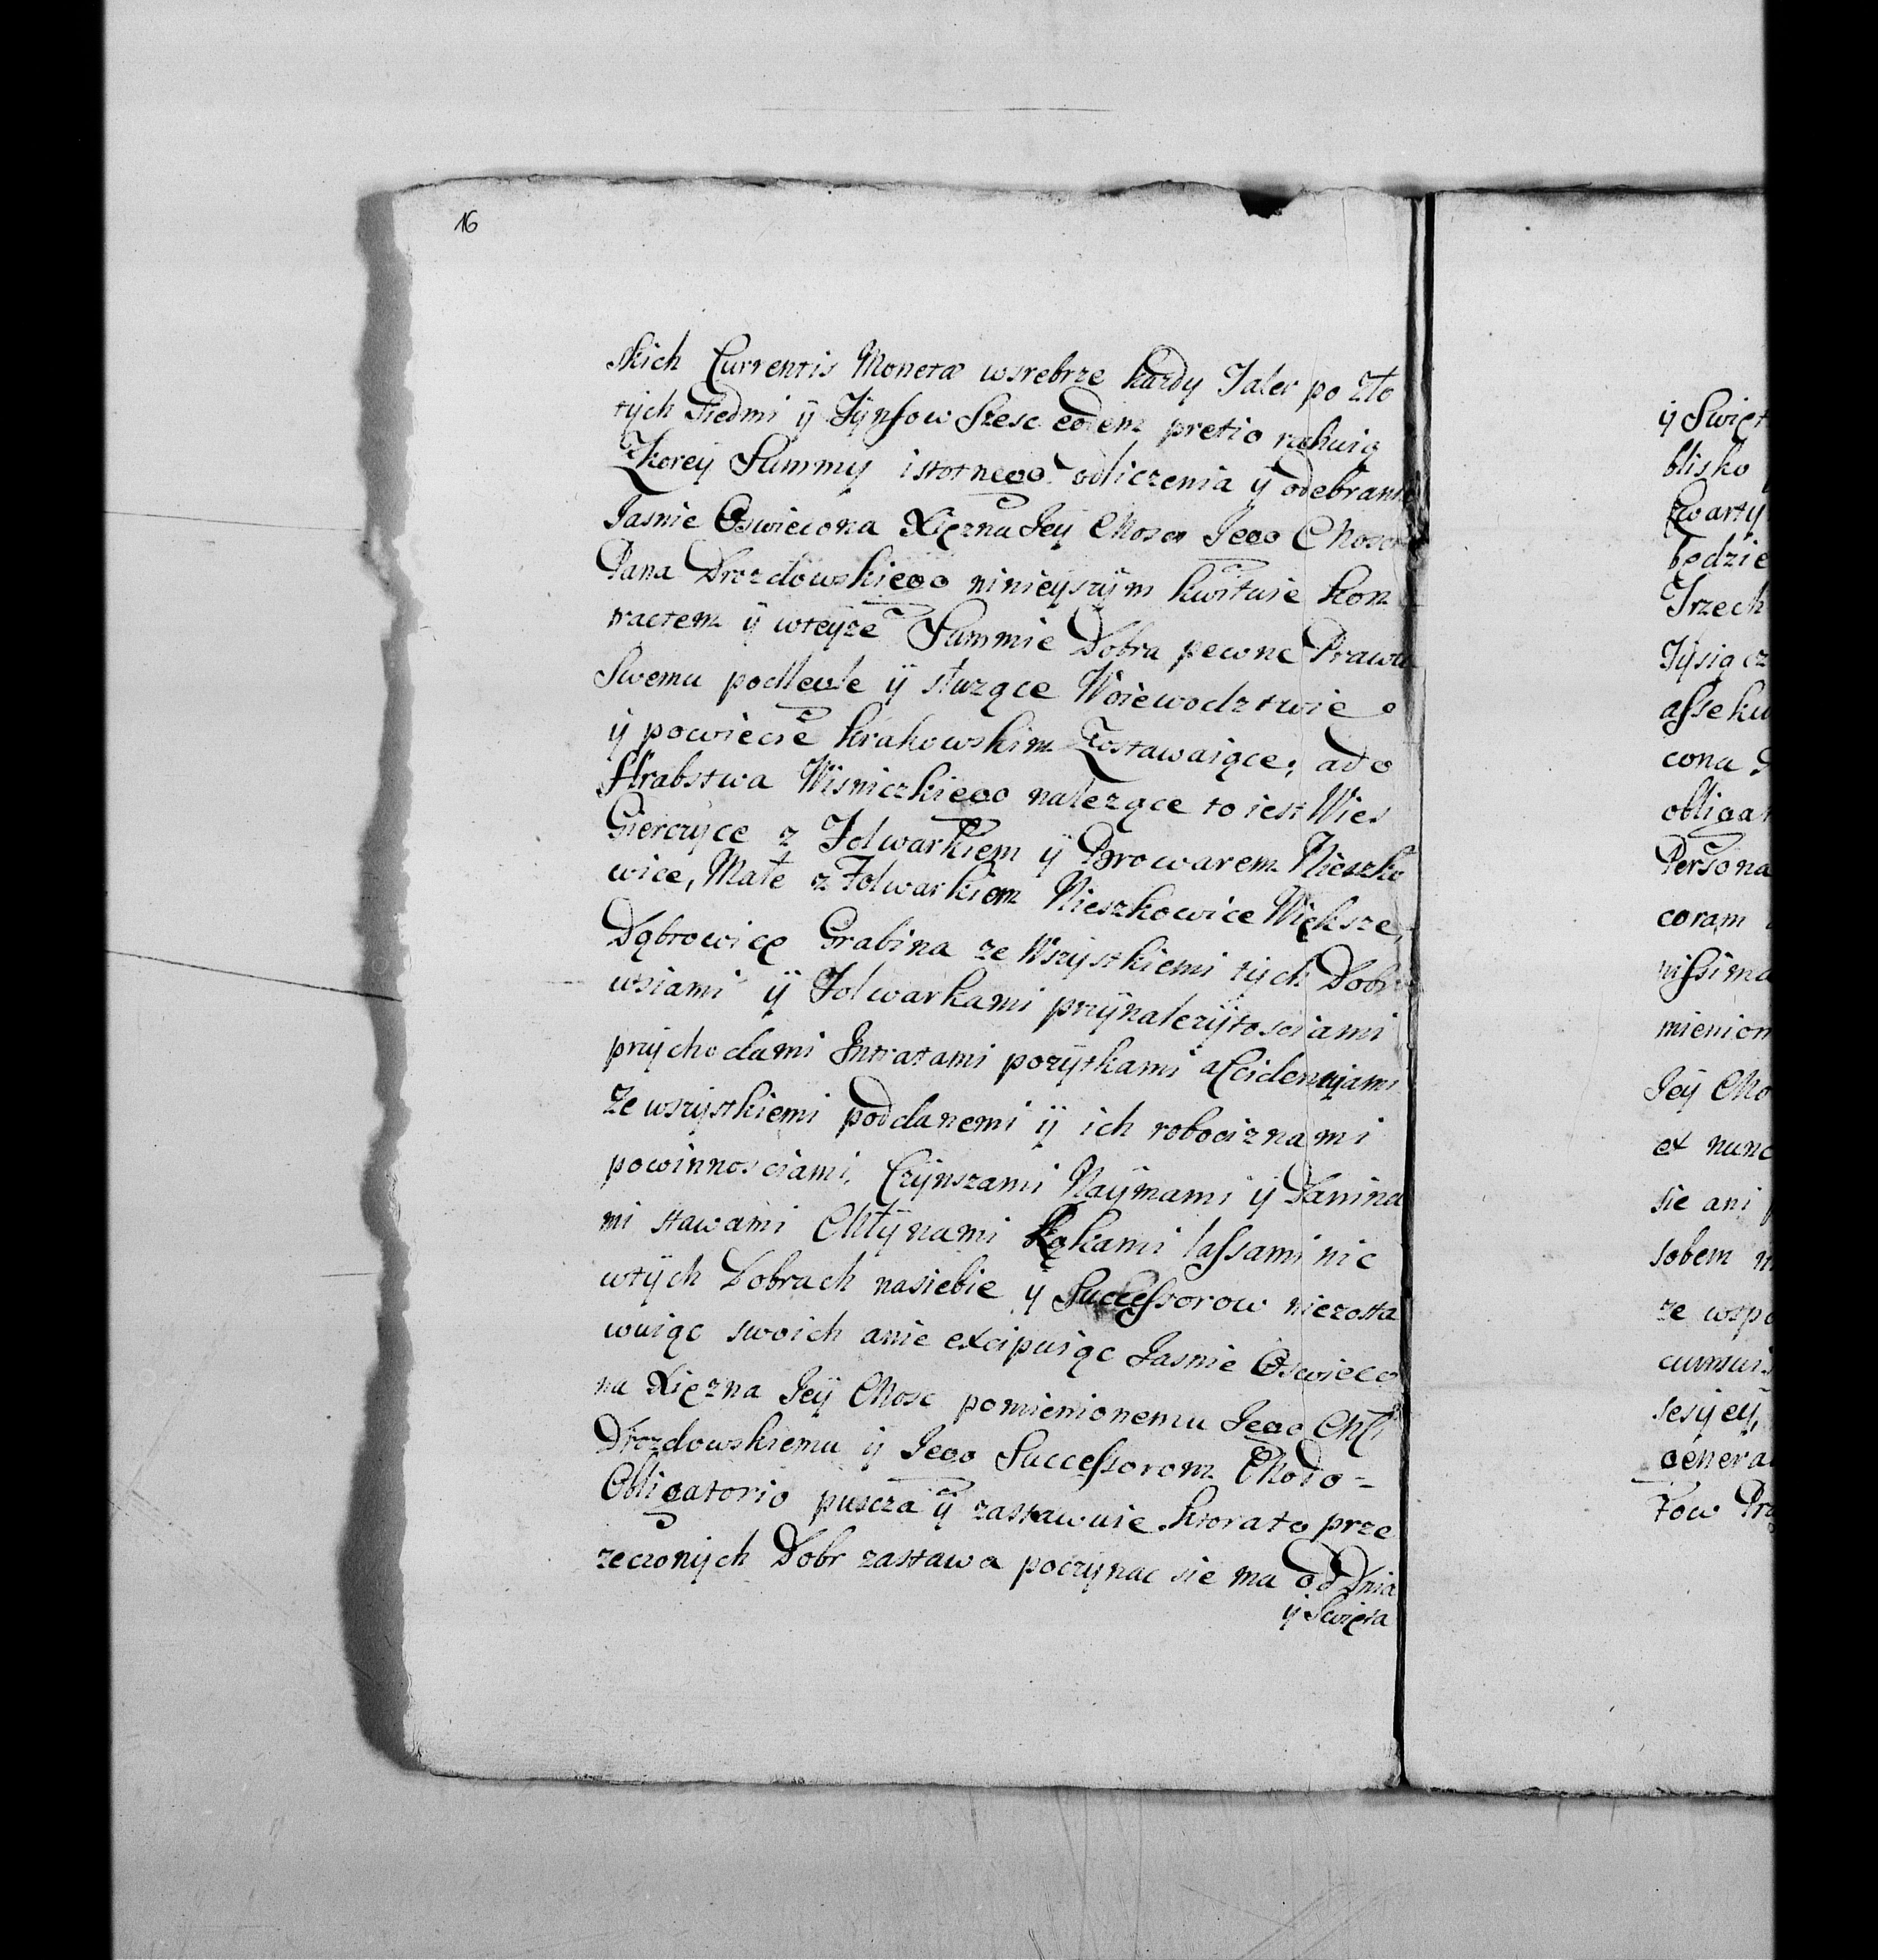 16
skich Currentis Monetæ wsrebrze kazdy Taler po zło
tÿch siedmi ÿ Tÿnfow szesc eodem pretio rachuiąc
Zktorey Summÿ istotnego odliczenia ÿ odebrania
Jasnie Oswiecona Xięzna Jeÿ Mosci Jego Mosci
Pana Drozdowskiego ninieÿszÿm kwituie kon
tractem ÿ wteÿze Summie Dobra pewne Prawu
Swemu podległe ÿ słuzące Woiewodztwie
ÿ powiecie krakowskim Zostawaiące, ado
Hrabstwa Wisniczkiego nalezące to iest Wies
Gierczÿce z Folwarkiem ÿ Browarem Nieszko
wice, Małe z Folwarkiem Nieszkowice Większe,
Dąbrowicę Grabina ze Wszÿstkiemi tÿch Dobr
wsiami ÿ Folwarkami przÿnalezÿtosciami
przÿchodami Intratami pozÿtkami acciden
ze wszÿstkiemi poddanemi ÿ ich robociznami
powinnosciami, Czÿnszami Naÿmami ÿ Danina
mi stawami Młÿnami Łąkami lassami nic
wtÿch Dobrach nasiebie ÿ Successorow niezosta
wuiąc swoich anie excipuiąc Jasnie Oswieco
na Xięzna Jeÿ Mosc pomienionemu Jego Mci
Drozdowskiemu ÿ Jego Successorom Modo=
Obligatorio puscza ÿ zastawuie ktorato prze
rzeczonÿch Dobr zastawa poczÿnac sie ma od Dnia
ÿ Swięta
ÿ Swięt
blisko
Czwartÿ
będzie
Trzech
Tÿsiącz
asseku
cona
obligat
Persona
coram
nissima
mienion
Jeÿ Mo
ex nunc
sie ani
sobem
ze wspo
cumui
sesÿeÿ,
genera
tow Prz